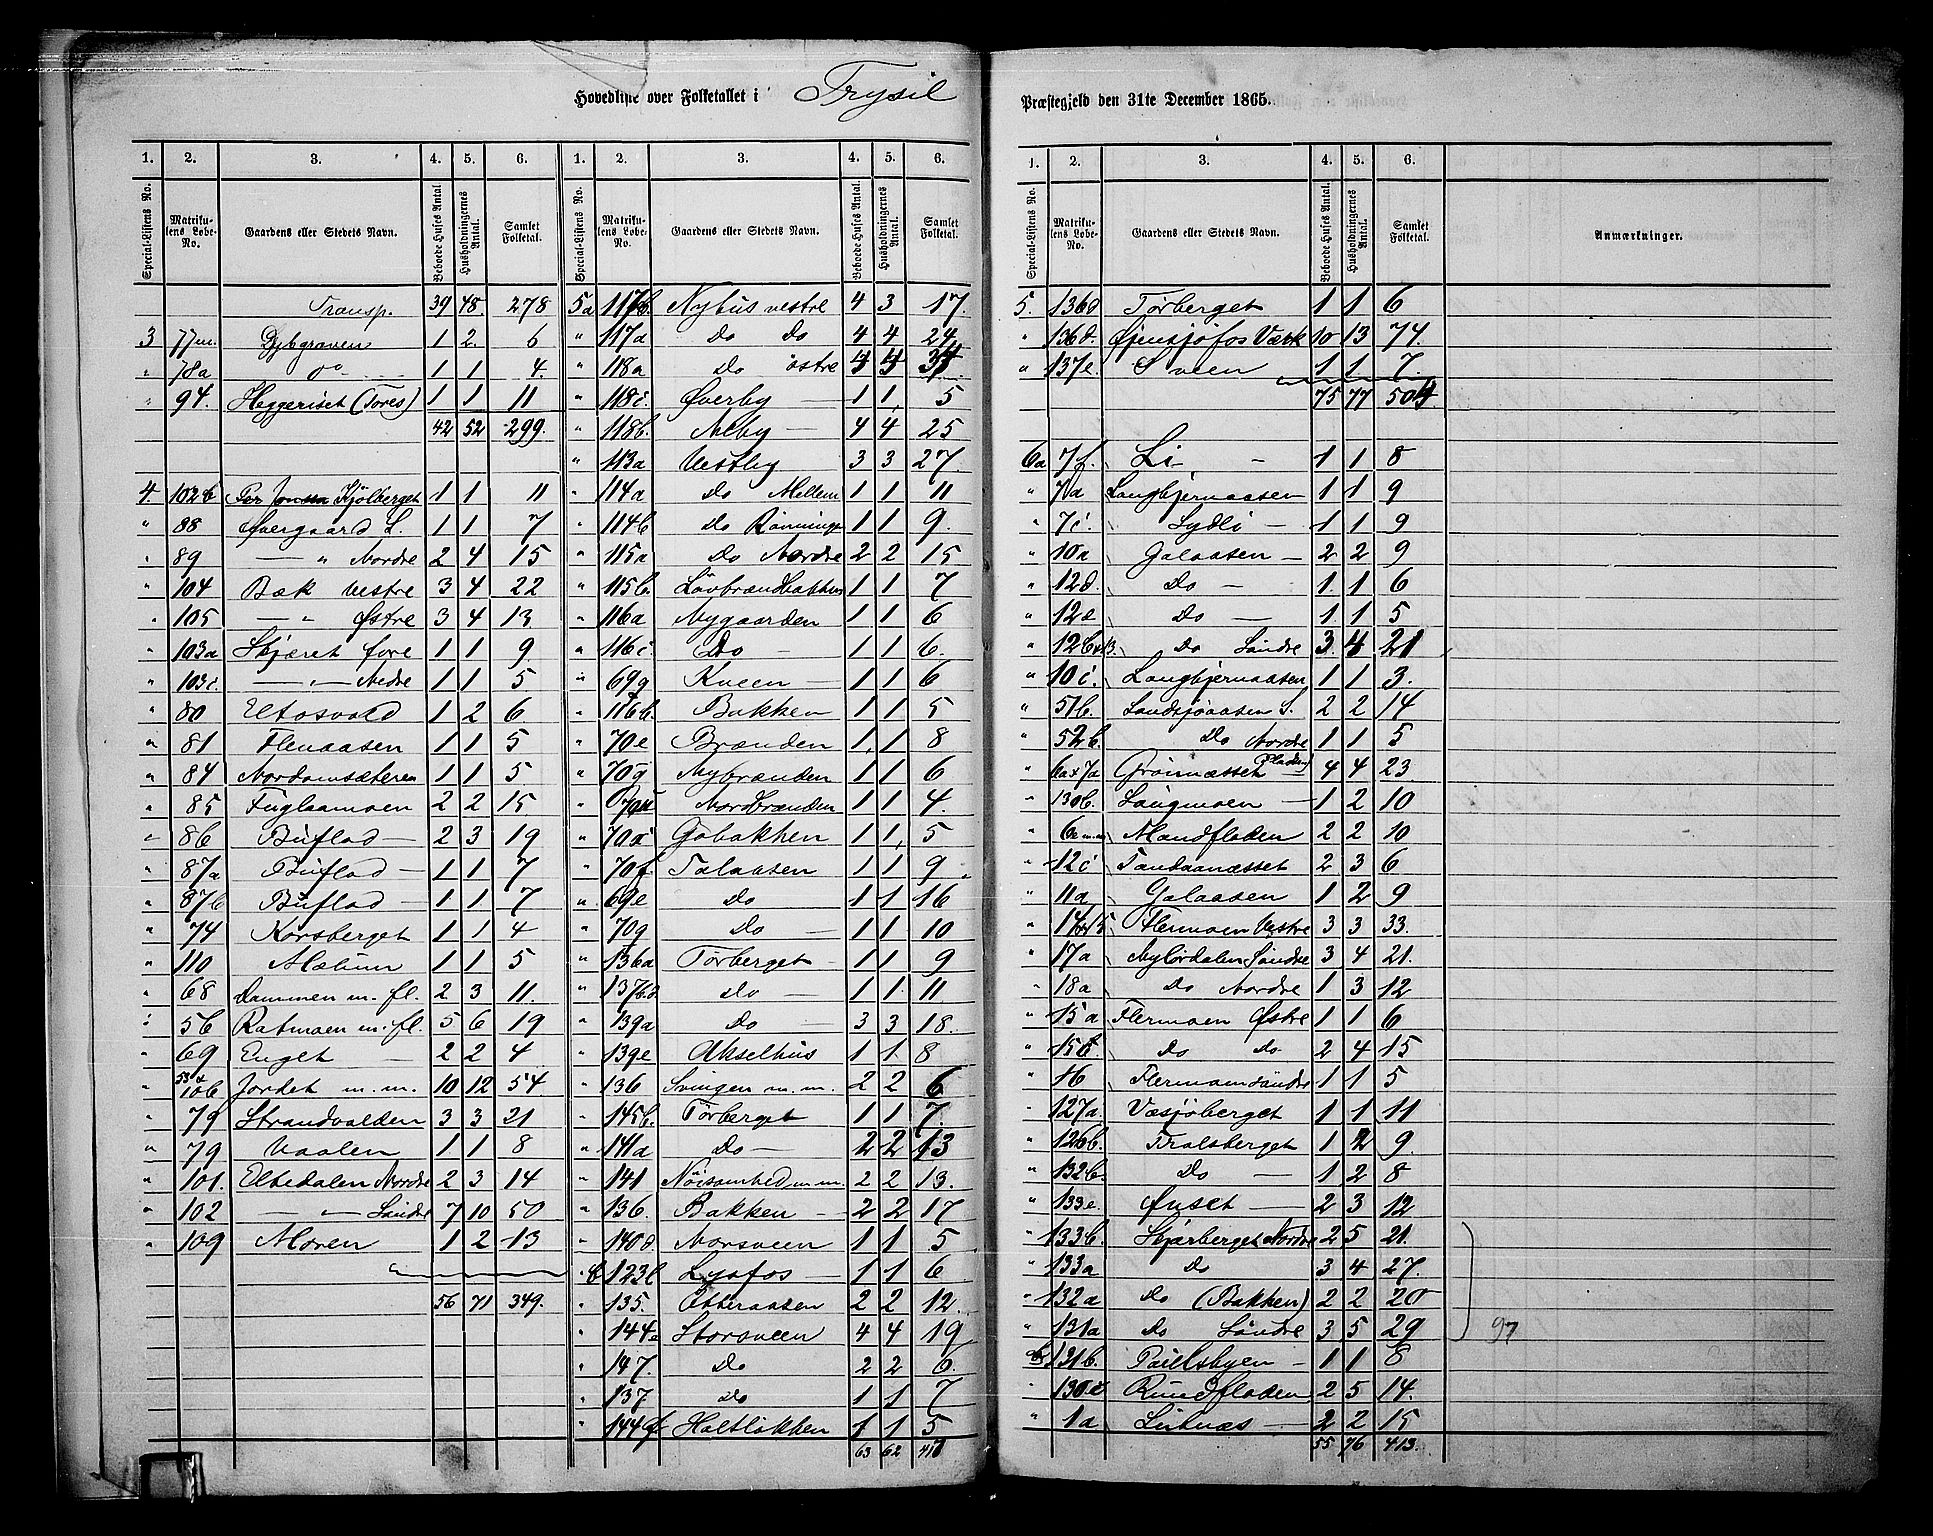 Hovedliste over Folketallet i Trysil Præstegjeld den 31te December 1865.
1. 2. 3. 4. 5. 6. 1. 2. 3. 4. 5. 6.
Special-Listens No. Matrikulens Løbe-No. Gaardens eller Stedets Navn. Beboede Huses Antal. Husholdningernes Antal. Samlet Folketal. Special-Listens No. Matrikulens Løbe-No. Gaardens eller Stedets Navn. Beboede Huses Antal. Husholdningernes Antal. Samlet Folketal.
Transp. 39 48. 278
3 77m. Dybgraven 1 2. 6
" 78a do 1 1 4.
" 94. Heggeriset (Tores) 1 1 11
42 52 299.
4. 102b Kjölberget 1 1 11
" 88 Øvergaard S. 1 1 7
" 89 — " Nordre 2 4 15
" 104 Bæk Vestre 3 4 22
" 105 — " Østre 3 4 13
" 103a Skjæret øvre 1 1 9
" 103c. — " — Nedre 1 1 5
" 80 Eltosvold 1 2 6
" 81 Flenaasen 1 1 5
" 84 Nordomsæteren 1 1 5
" 85 Fuglaamoen 2 2 15
" 86 Buflod — 2 3 19
" 87a Buflod — 1 1 7
" 87b Buflod — 1 1 7
" 74 Korsberget 1 1 4
" 110 Mælum 1 1 5
" 68 Dammen m. fl. 2 3 11.
" 56 Ratmoen m. fl. 5 6 19
" 69 Enget — 2 2 4
" 106 Jordet m. m. 10 12 54
" 79 Strandvolden 3 3 21
" 79 Vaalen 1 1 8
" 101. Eltedalen Nordre 2 3 14
" 102 — " — Søndre 7 10 50
" 109 Moren 1 2 13
56 71 349.
5a 117b. Nyhus vestre 4 3 17.
" 117a Do Do 4 4 24
" 118a Do östre 4 4 34
" 118c. Øverby — 1 1 5
" 118b. Neby — 4 4 25
" 113a Vestby 3 3 27
" 114a Do Mellem 1 1 11
" 114b Do Rönningen 1 1 9.
" 115a Do Nordre 2 2 15
" 115b. Lövbrændbakken 1 1 7
" 116a Nygaarden 1 1 6
" 116c. Do — 1 1 6.
" 69g Kveen — 1 1 6
" 116b. Bakken 1 1 5
" 70e Brænden 1 1 8
" 70g Nybrænden 1 1 6
" Nordbrænden 1 1 4.
" 70a Gabakken 1 1 5
" 70f Talaasen 1 1 9
" 69e Do 1 1 16
" 70g Do — 1 1 10
" 136a Törberget — 1 1 9
" 137b. Do — 1 1 11
" 139a Do — 3 3 18.
" 139e Akselhus 1 1 8
" 136 Svingen m. m. 2 2 6
" 145b. Törberget 1 1 7.
" 141a Do — 2 2 13
" 141 Nöisomhed m. m. 2 2 13.
" 136. Bakken — 2 2 17
" 140d Norsveen 1 1 5
" b 123b Lysfos — 1 1 6
" 135. Otteraasen 2 2 12.
" 144e Storsveen 4 4 19
" 147. Do 2 2 6.
" 137 Do 1 1 7
" 144f Holtlökken 1 1 5
63 62 418
1. 2. 3. 4. 5. 6.
Special-Listens No. Matrikulens Løbe-No. Gaardens eller Stedets Navn. Beboede Huses Antal. Husholdningernes Antal. Samlet Folketal. Anmærkninger.
5. 136d Törberget 1 1 6
" 136d. Øiensjøfos Værk 10 13 74.
" 137e. Sveen 1 1 7.
75 77 504
6a 7f. Li — 1 1 8
" 7a Langbjernaasen 1 1 9
" 7c. Sydli — 1 1 9
" 10a Galaasen — 2 2 9
" 12d. Do — 1 1 6
" 12e Do — 1 1 5
" 12b Do Söndre 3. 4 21
" 10c. Langbjernaasen 1 1 3.
" 51b. Landsjøaasen S. 2 2 14
" 52b. Do Nordre 1 1 5
" 6a+7a Grönnæsset 4 4 23
" 130b. Langmoen — 1 2 10
" 6 Mandfloden 2 2 10
" 12c Tandaanæsset 2 3 6
" 11a Galaasen 1 2 9
" Flermoen Vestre 3 3 33.
" 17a Nylördalen Söndre 3 4 21.
" 18a Do Nordre 1 3 12
" 15a Flermoen Østre 1 1 6
" 15b Do do 2 4 15
" 16 Flermoen Söndre 1 1 5
" 127a. Væsjöberget 1 1 11
" 126b. Tralsberget 1 2 9.
" 132b. Do — 1 2 8
" 133e. Ønset — 2 3 12
" 133b. Skjærberget Nordre 2 5 21.
" 133a Do 3 4 27.
" 132a Do (Bakken) 2 2 20
" 131a Do Söndre 3 5 29 97
6b 131b. Poulsbyen — 1 1 8
" 130e Rundfloden 2 5 14.
" 1a Linnæs — 2 2 15
55 76 413.